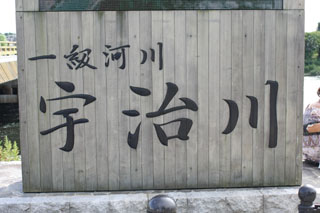 一級河川
宇治川